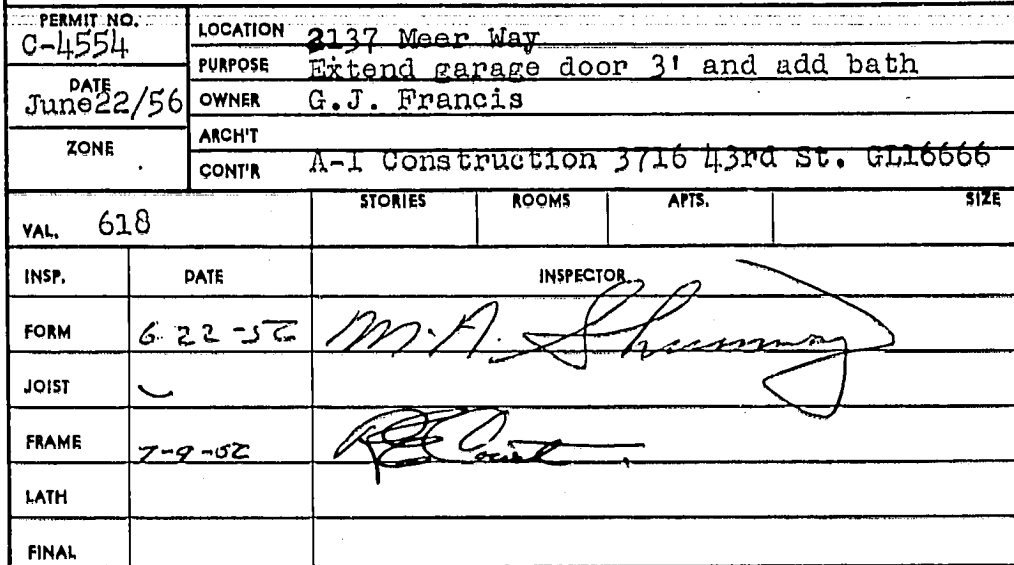 PERMIT NO. LOCATION 2137 Meer Way
C-4554 PURPOSE Extend garage door 3' and add bath
DATE OWNER G.J. Francis
June22/56 ARCH'T
ZONE CONT'R A-1 Construction 3716 43rd St. GL16666
VAL. 618 STORIES ROOMS APTS. SIZE
INSP. DATE INSPECTOR
FORM 6-22-56 M.A. Shumway
JOIST
FRAME 7-9-56
LATH
FINAL